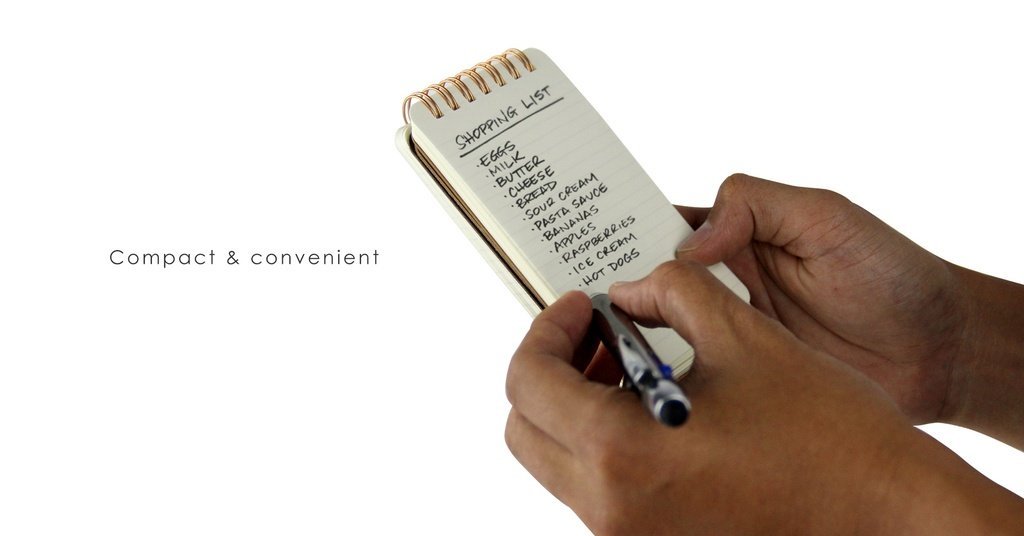 Compact & convenient
SHOPPING LIST
· EGGS
· MILK
· BUTTER
· CHEESE
· BREAD
· SOUR CREAM
· PASTA SAUCE
· BANANAS
· APPLES
· RASPBERRIES
· ICE CREAM
· HOT DOGS